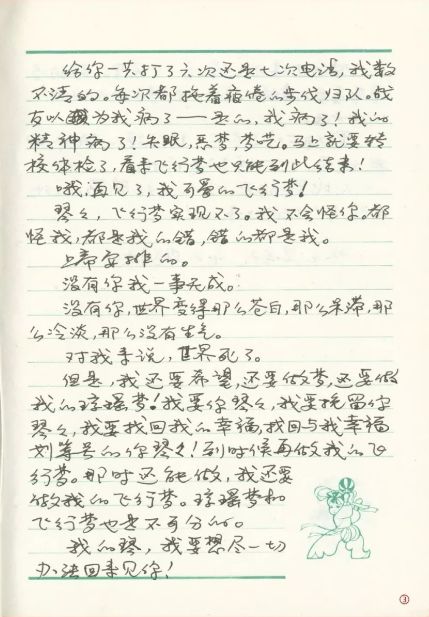 给你一共打了六次还是七次电话,我数
不清的。每次都拖着疲倦的步伐归队。战
友以为我病了——是的,我病了!我的
精神病了!失眠,恶梦,梦呓。马上就要转
校体检了,看来飞行梦也只能到此结束!
哦,再见了,我可爱的飞行梦!
琴々,飞行梦实现不了。我不会怪你。都
怪我,都是我的错,错的都是我。
上帝安排的。
没有你我一事无成。
没有你,世界变得那么苍白,那么呆滞,那
么冷淡,那么没有生气。
对我来说,世界死了。
但是,我还要希望,还要做梦,还要做
我的琼瑶梦!我要你琴々,我要挽留你
琴々,我要找回我的幸福,找回与我幸福
划等号的你琴々!到时候再做我的飞
行梦。那时还能做,我还要
做我的飞行梦。琼瑶梦和
飞行梦也是不可分的。
我的琴,我要想尽一切
办法回来见你!
③